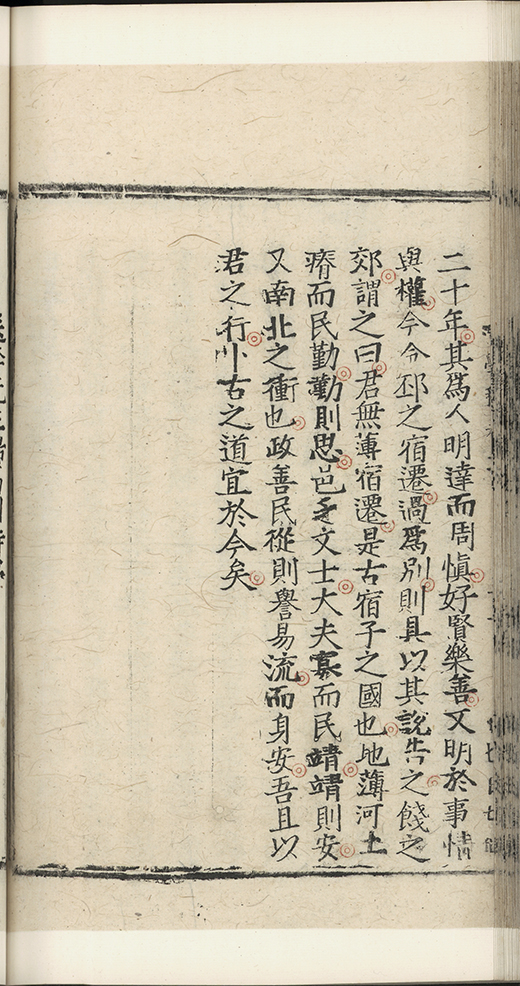 二十年其爲人明達而周慎好賢樂善又明於事情
與權今令邳之宿遷過爲別則具以其說告之餞之
郊謂之曰君無薄宿遷是古宿子之國也地薄河土
瘠而民勤勤則思邑多文士大夫寡而民靖靖則安
又南北之衝也政善民從則譽易流而身安吾且以
君之行卜古之道宜於今矣